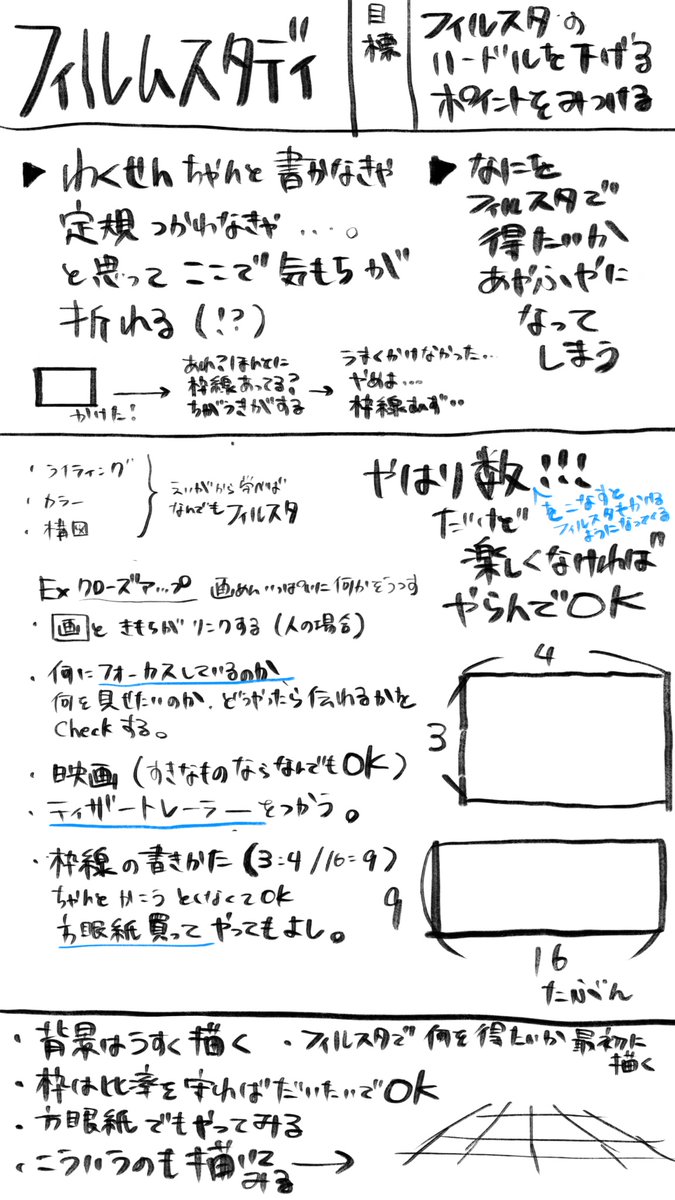 フィルムスタディ
目標
フィルスタの
ハードルを下げる
ポイントをみつける
▶ わくせんちゃんと書かなきゃ
定規つかわなきゃ…。
と思ってここで気もちが
折れる(!?)
▶ なにを
フィルスタで
得たいか
あやふやに
なって
しまう
かけた!
→
あれ?ほんとに
枠線あってる?
ちがうきがする
→
うまくかけなかった…
やめよ…
枠線
・ライティング
・カラー
・構図
えいがから学べば
なんでもフィルスタ
やはり数!!!
をこなすと
フィルスタもかける
ようになってくる
だけど
楽しくなければ
やらんでOK
Ex クローズアップ 画めんいっぱいに何かをうつす
・画ときもちがリンクする(人の場合)
・何にフォーカスしているのか
何を見せたいのか、どうやったら伝わるかを
Checkする。
・映画(すきなものならなんでもOK)
・ティザートレーラーをつかう。
・枠線の書きかた(3:4/16:9)
ちゃんとかこうとしなくてOK
方眼紙買ってやってもよし。
4
3
9
16
たぶん
・背景はうすく描く
・フィルスタで何を得たいか最初に
描く
・枠は比率を守ればだいたいでOK
・方眼紙でもやってみる
・こういうのも描いて
みる →